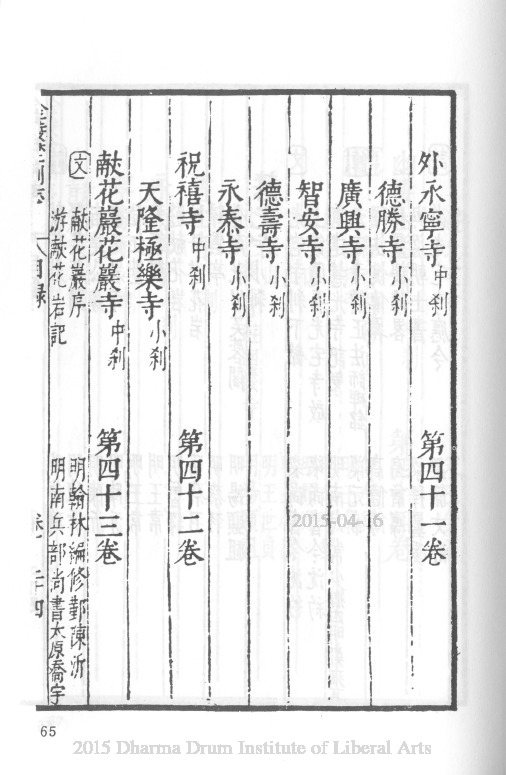 外永寧寺中刹 第四十一卷
德勝寺小刹
廣興寺小刹
智安寺小刹
德壽寺小刹
永泰寺小刹
祝禧寺中刹 第四十二卷
天隆極樂寺小刹
献花巖花巖寺中刹 第四十三卷
文 献花巖序 明翰林編修鄞陳沂
游献花岩記 明南兵部尚書太原喬宇
目録
2015-04-16
65
2015 Dharma Drum Institute of Liberal Arts